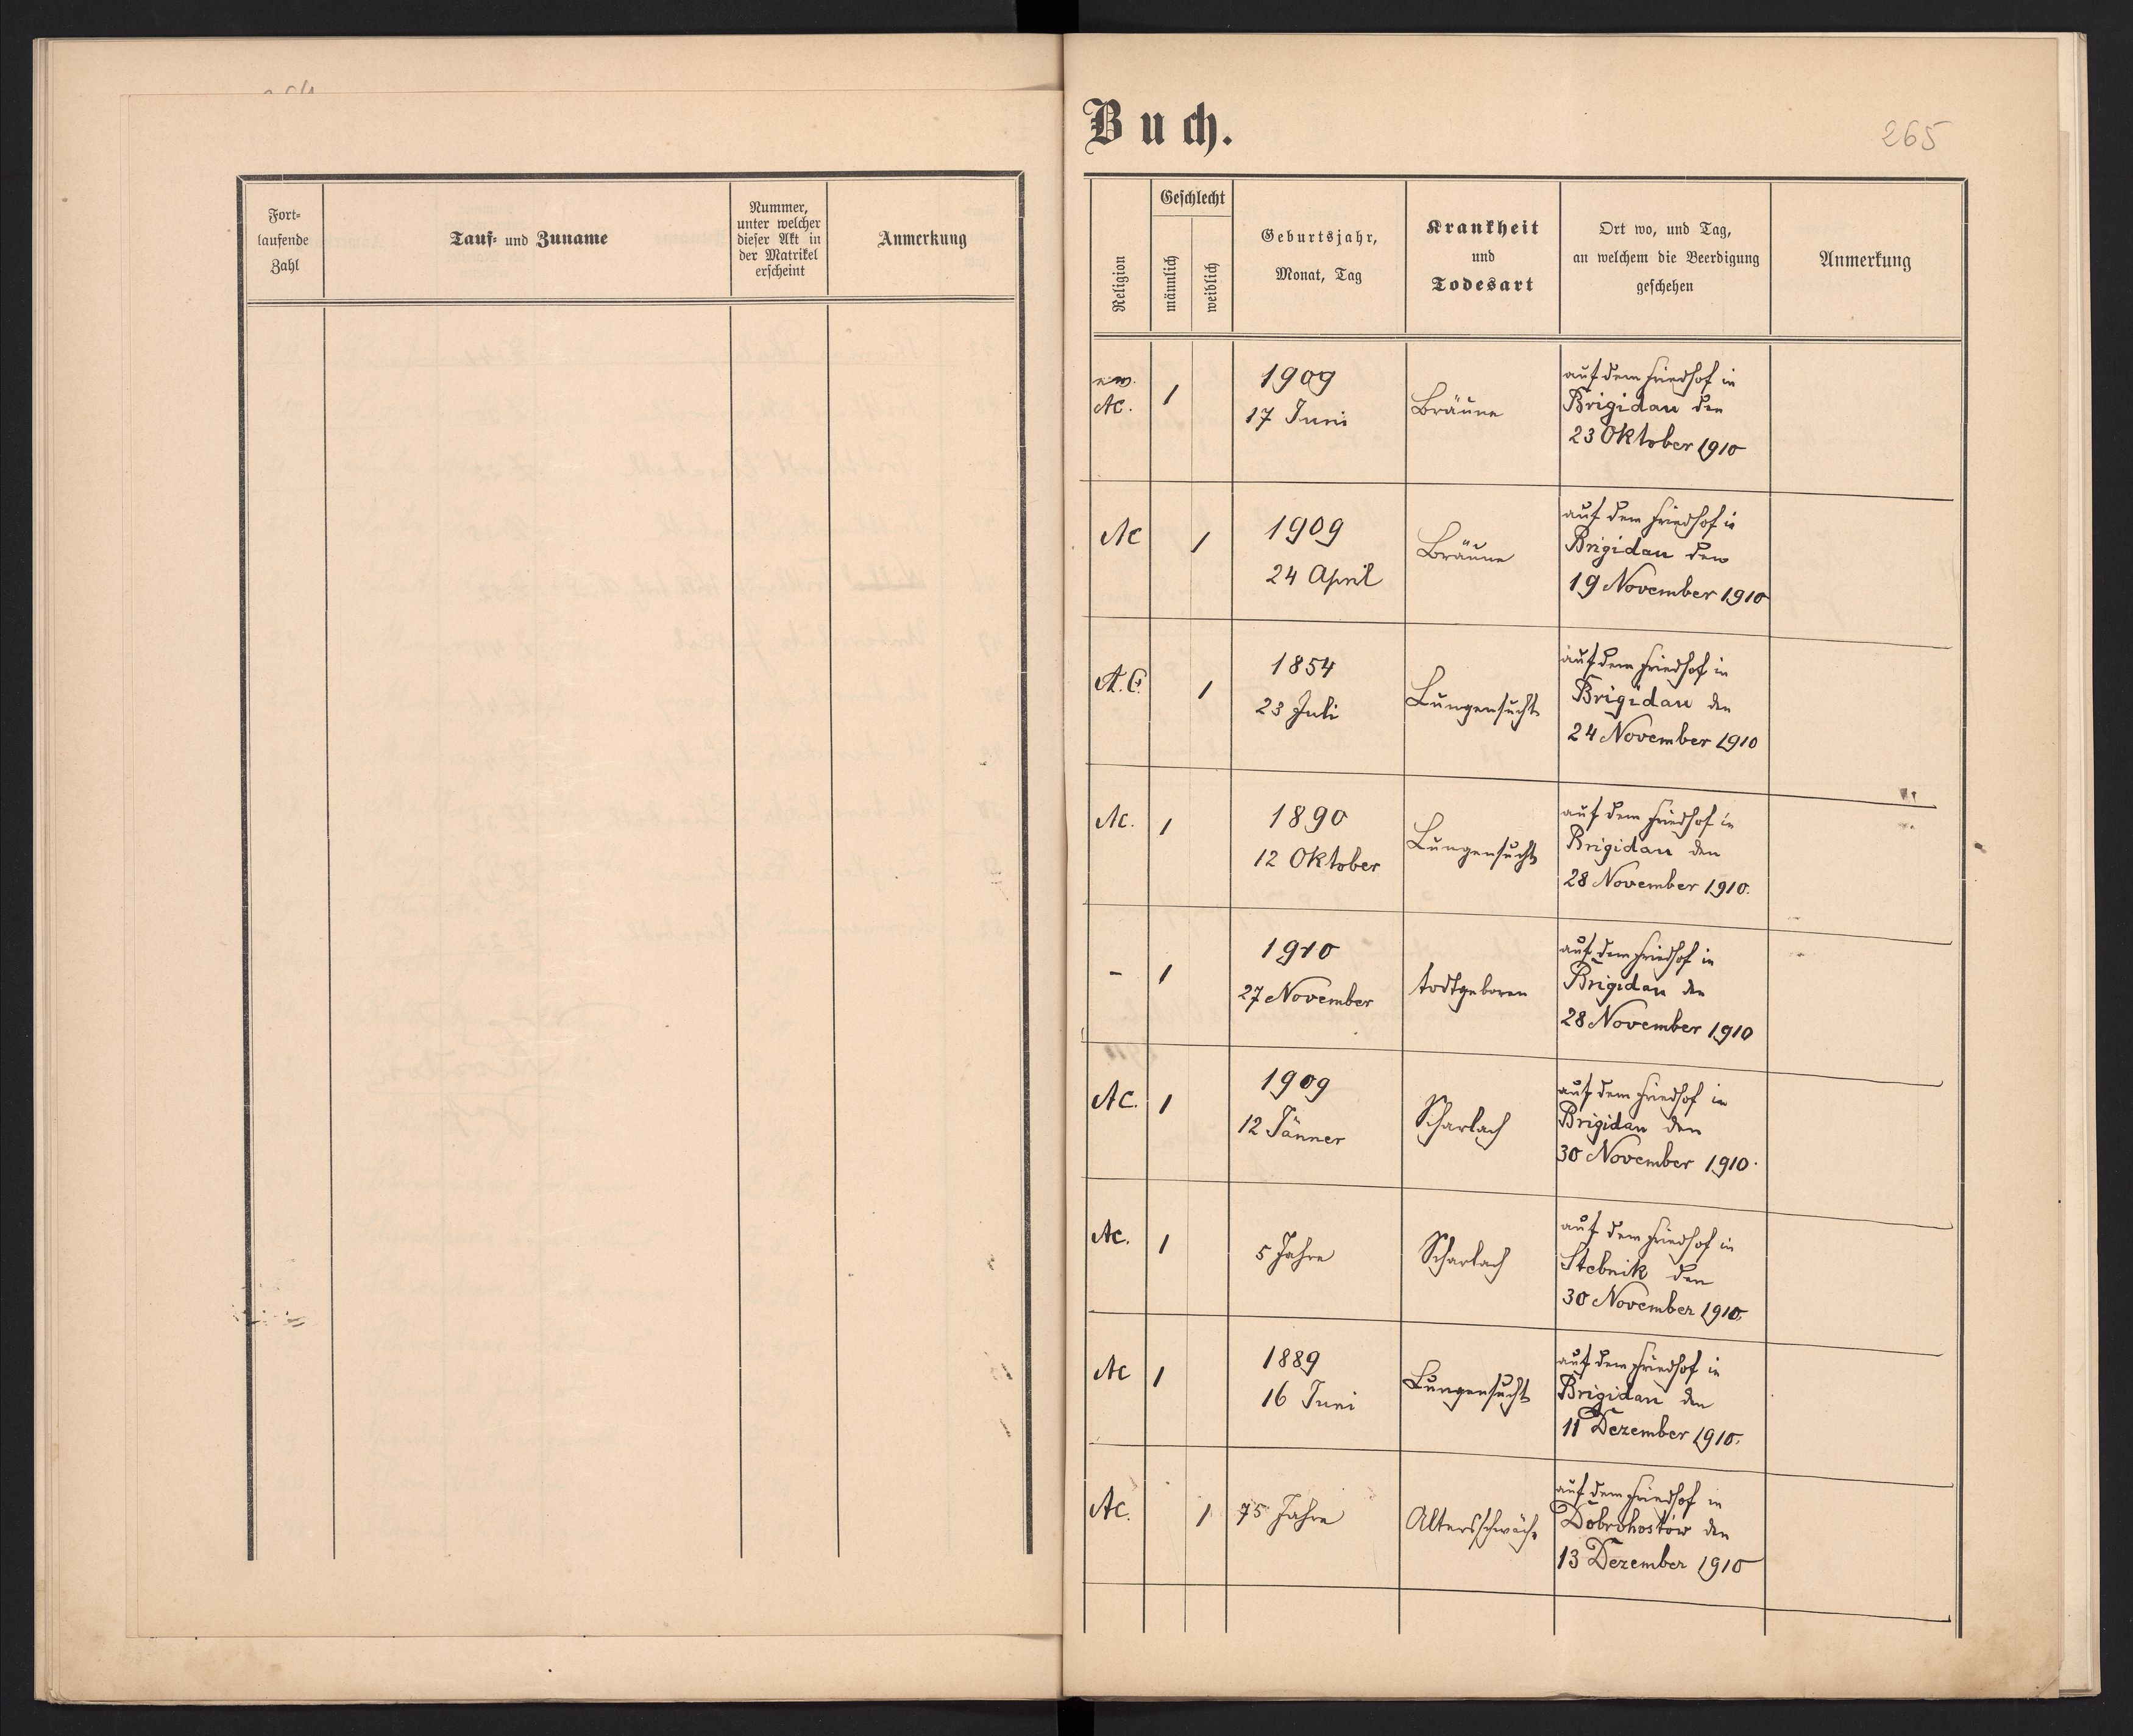 Fort-
laufende
Zahl
Tauf- und Zuname
Nummer,
unter welcher
dieser Akt in
der Matrikel
erscheint
Anmerkung
Buch.
265
Religion
Geschlecht
männlich
weiblich
Geburtsjahr,
Monat, Tag
Krankheit
und
Todesart
Ort wo, und Tag,
an welchem die Beerdigung
geschehen
Anmerkung
AC.
1
1909
17 Juni
Bräune
auf dem Friedhof in
Brigidau den
23 Oktober 1910
AC
1
1909
24 April
Bräune
auf dem Friedhof in
Brigidau den
19 November 1910
A.C.
1
1854
23 Juli
Lungensucht
auf dem Friedhof in
Brigidau den
24 November 1910
AC.
1
1890
12 Oktober
Lungensucht
auf dem Friedhof in
Brigidau den
28 November 1910.
-
1
1910
27 November
todtgeboren
auf dem Friedhof in
Brigidau den
28 November 1910
AC.
1
1909
12 Jänner
Scharlach
auf dem Friedhof in
Brigidau den
30 November 1910.
AC.
1
5 Jahre
Scharlach
auf dem Friedhof in
Stebnik den
30 November 1910.
AC
1
1889
16 Juni
Lungensucht
auf dem Friedhof in
Brigidau den
11 Dezember 1910.
AC.
1
75 Jahre
Altersschwäche
auf dem Friedhof in
Dobrohostów den
13 Dezember 1910